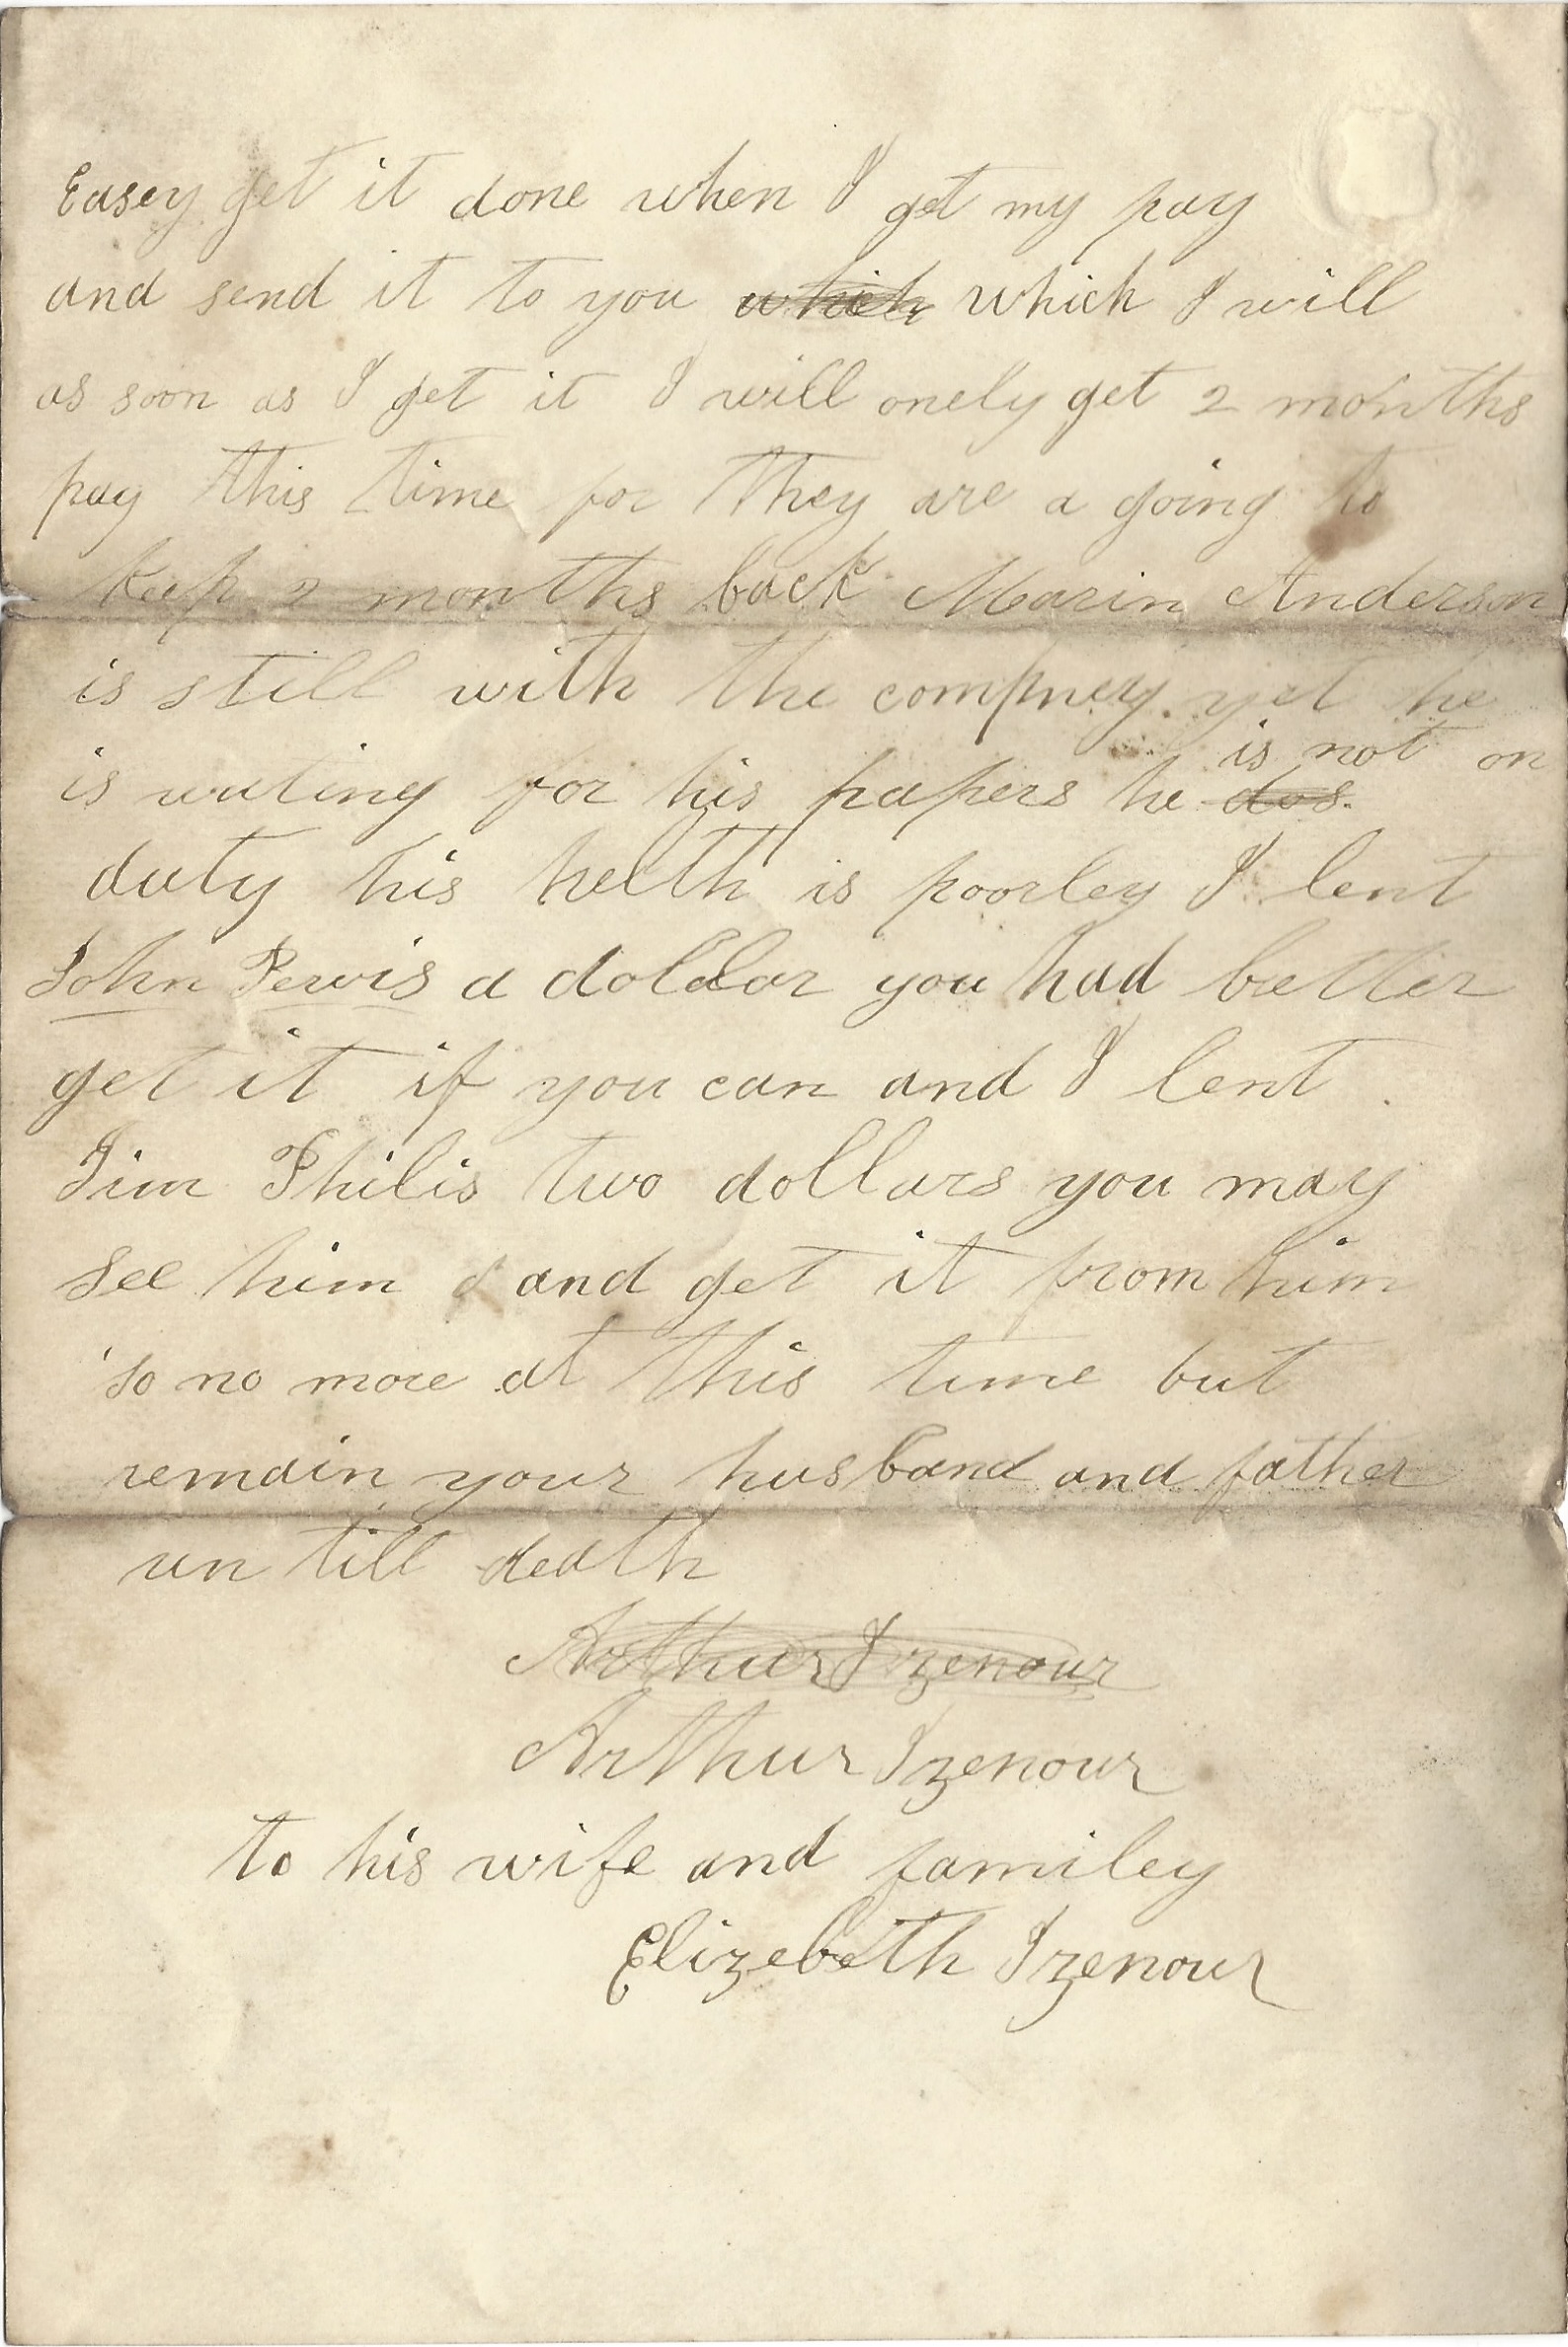 Easey get it done when I get my pay
and send it to you which which I will
as soon as I get it I will onely get 2 months
pay this time for they are a going to
keep 2 months back Marin Anderson
is still with the compney yet he
is wating for his papers he dos. is not on
duty his helth is poorley I lent
John Pervis a dolalar you had better
get it if you can and I lent
Jim Philis two dollars you may
see him and get it from him
so no more at this time but
remain your husband and father
un till death
Arthur Izenour
Arthur Izenour
to his wife and familey
Elizebeth Izenour